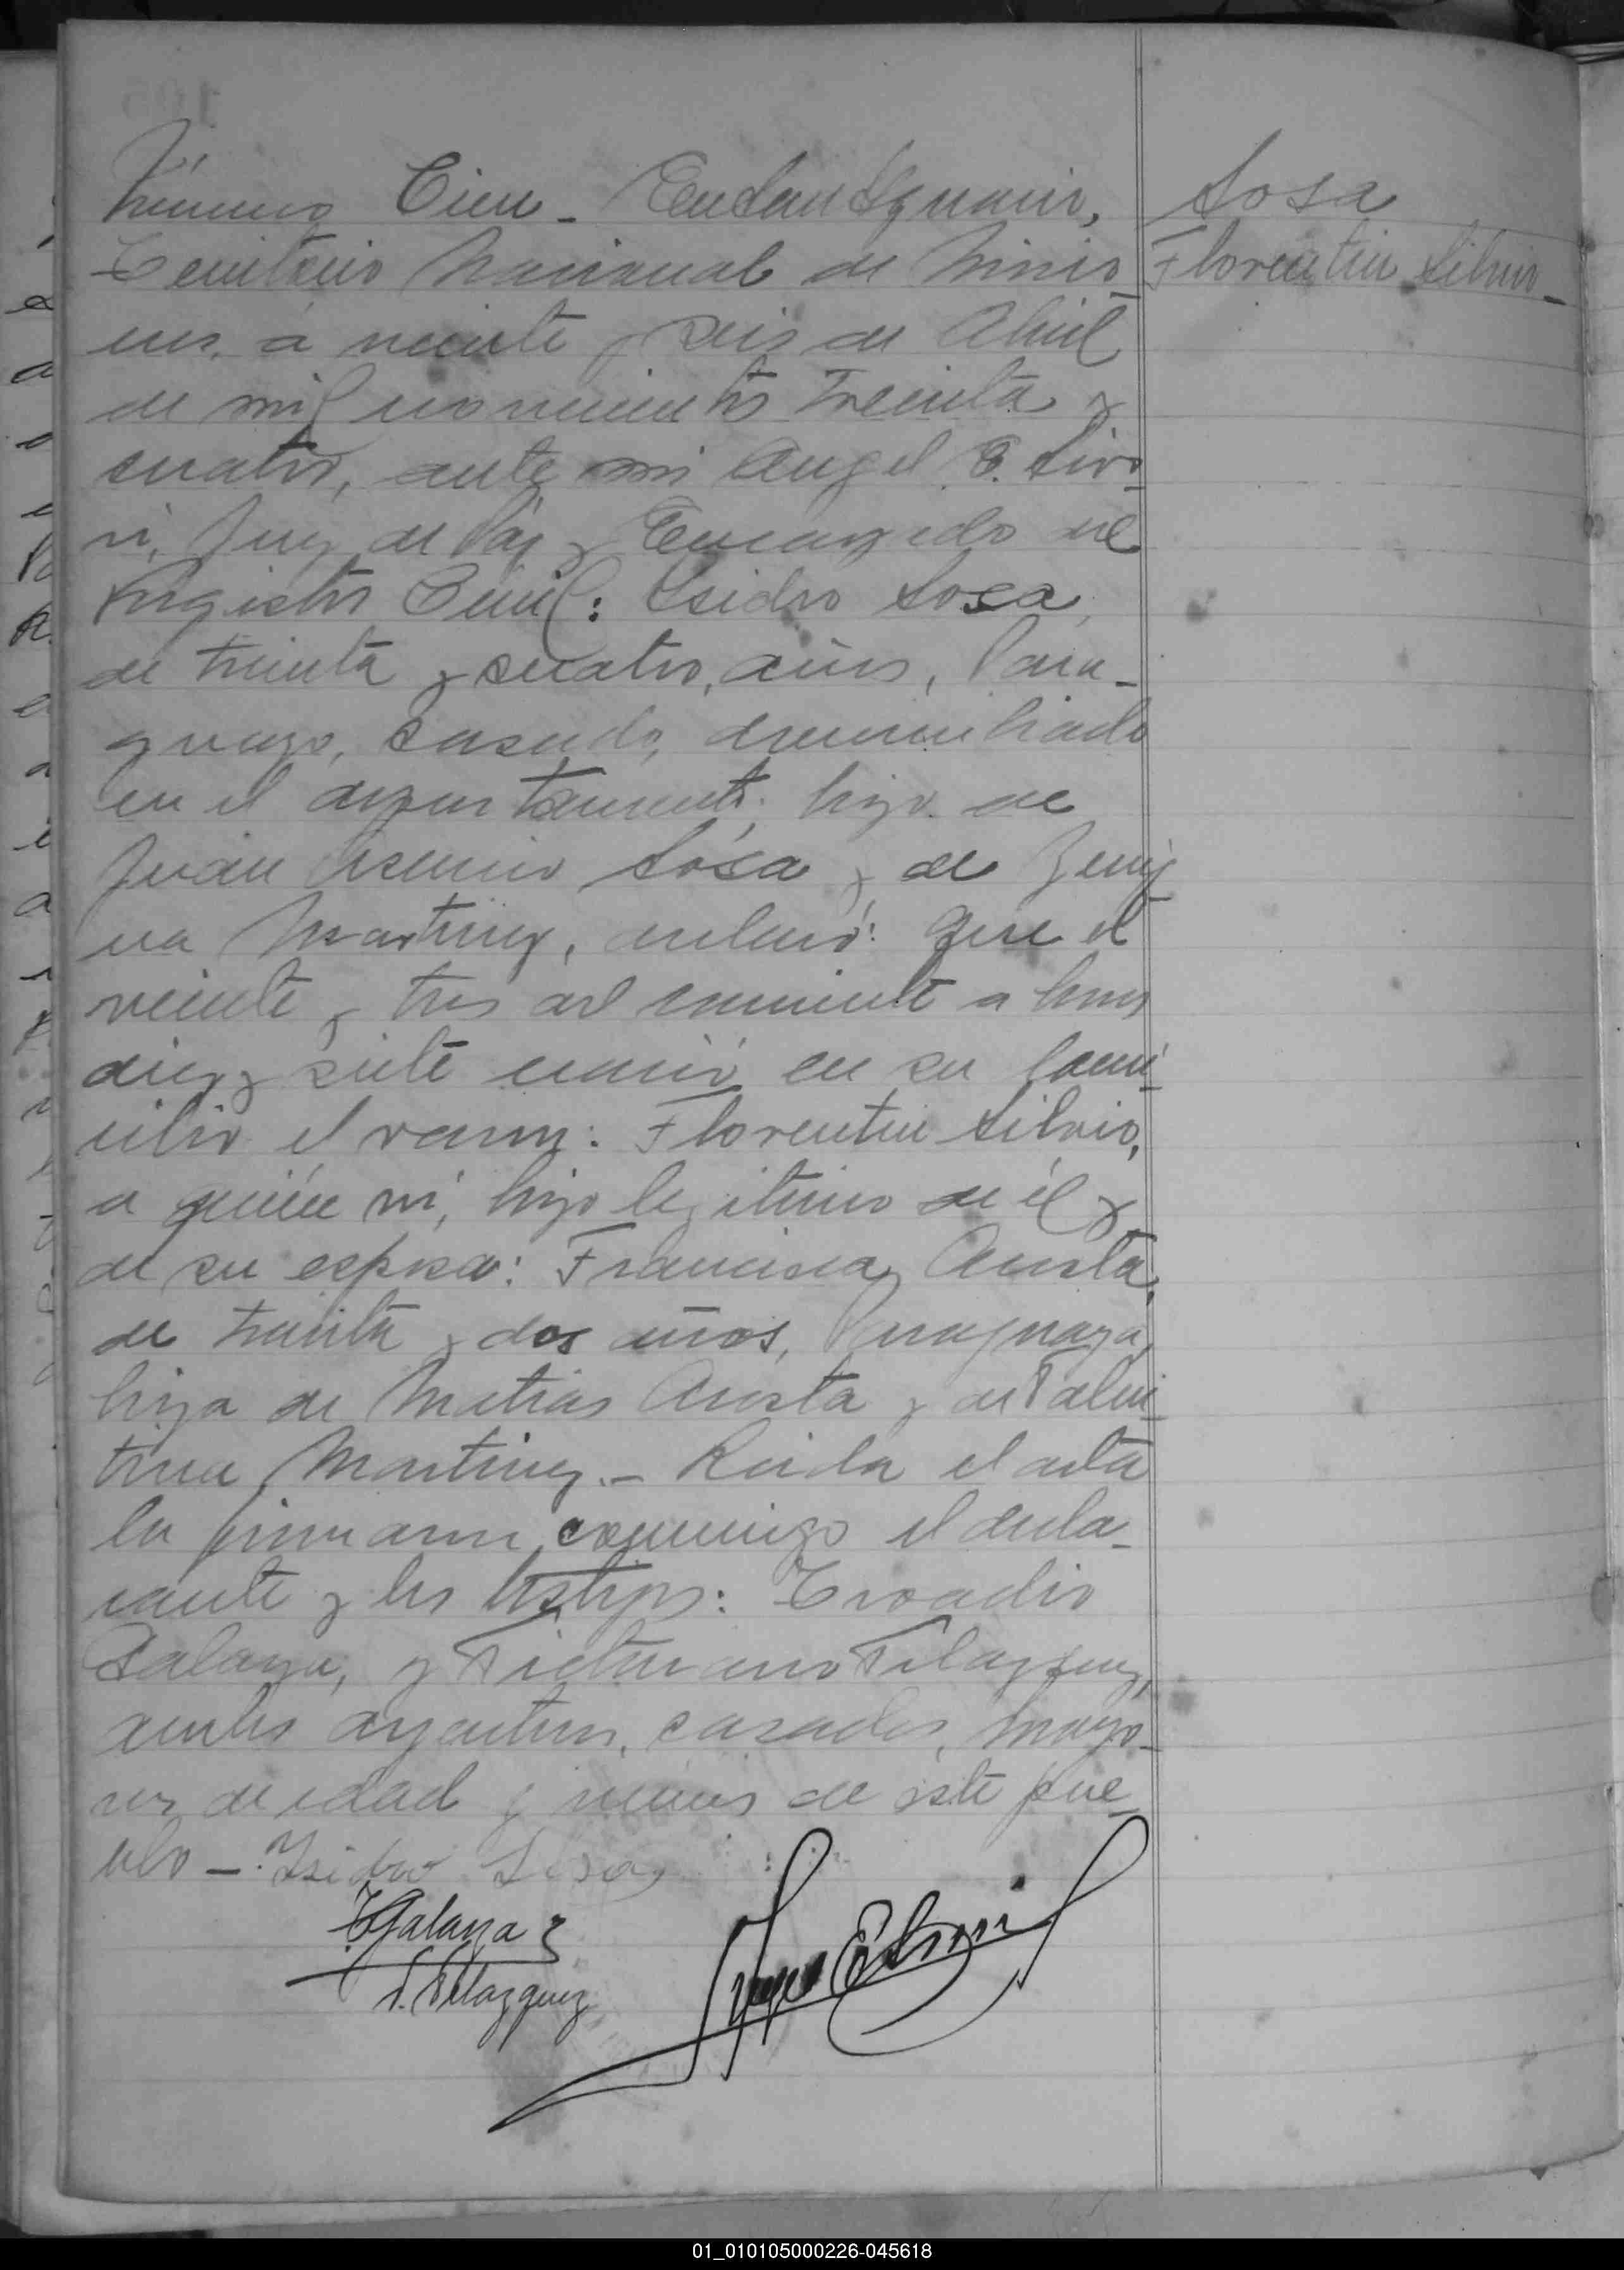 Número Cien _ En San Ignacio,
Territorio Nacional de Misio_
nes, á veinte y seis de Abril
de mil novecientos treinta y
cuatro, ante mi Angel E. Sivo_
ri, Juez de Paz y Encargado del
Registro Civil: Isidro Sosa,
de treinta y cuatro, años, Para_
guayo, casado, domiciliado
en el departamento, hijo de
Juan Asencio Sosa y de
na Martinez, declaró: Que el
veinte y tres del corriente a horas
diez y siete nació en su domi_
cilio el varon: Florentin Silvio,
a quién ví, hijo legitimo de él y
de su esposa: Francisca Acosta,
de treinta y dos años, Paraguaya,
hija de Matias Acosta y de Valen_
tina Martinez._ Leida el acta
la firmaron conmigo el decla_
rante y los testigos: Eroadio
Galarza, y Victoriano Velazquez,
ambos argentinos, casados, mayo_
res de edad y vecinos de este pue_
blo _. Isidro Sosa
Galarza
V. Velazquez
Angel E. Sivori
Sosa
Florentin Silvio_
01_010105000226-045618